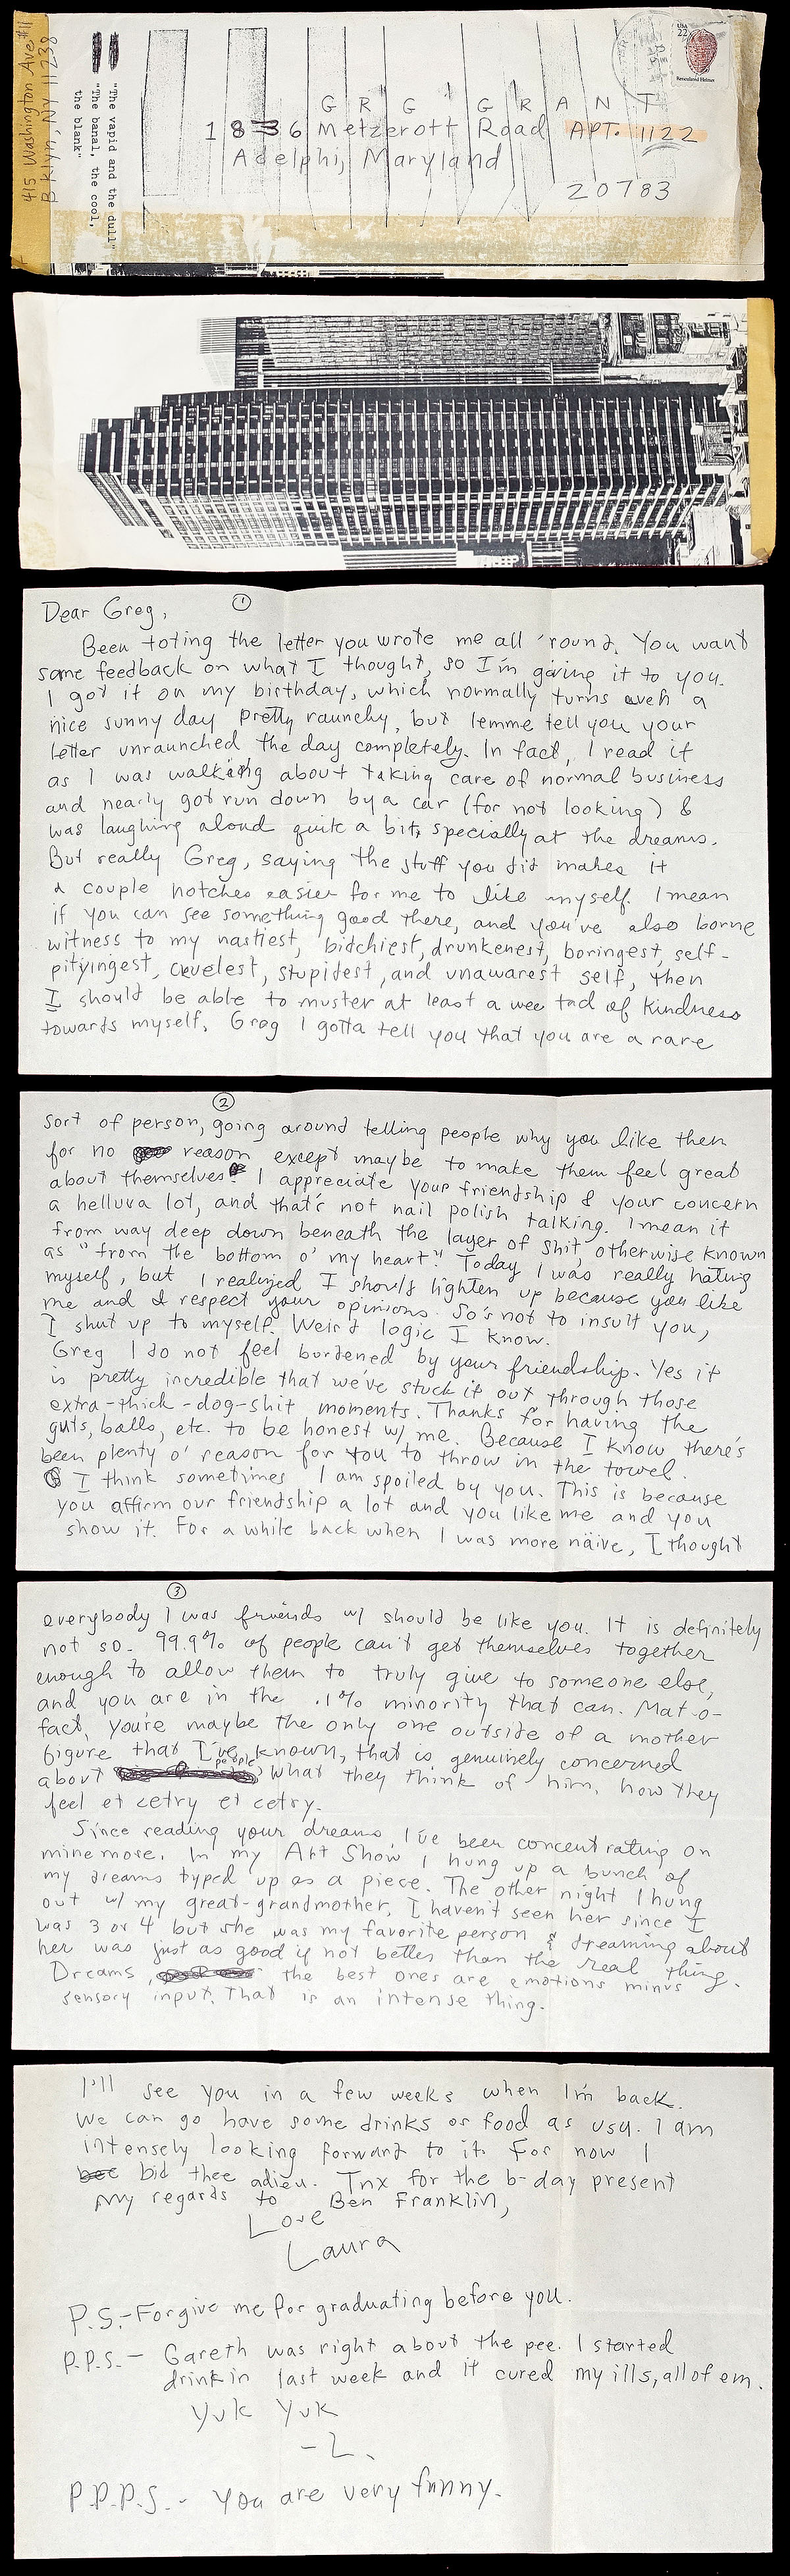 415 Washington Ave #11
Bklyn, NY 11238
"The vapid and the dull"
"The banal, the cool,
the blank"
USA
22
GRG GRANT
1836 Metzerott Road APT. 1122
Adelphi, Maryland
20783
①
Dear Greg,
Been toting the letter you wrote me all 'round. You want
some feedback on what I thought, so I'm giving it to you.
I got it on my birthday, which normally turns even a
nice sunny day pretty raunchy, but lemme tell you your
letter unraunched the day completely. In fact, I read it
as I was walking about taking care of normal business
and nearly got run down by a car (for not looking) &
was laughing aloud quite a bit, specially at the dreams.
But really Greg, saying the stuff you did makes it
a couple notches easier for me to like myself. I mean
if you can see something good there, and you've also borne
witness to my nastiest, bitchiest, drunkenest, boringest, self-
pityingest, cruelest, stupidest, and unawarest self, then
I should be able to muster at least a wee tad of kindness
towards myself. Greg I gotta tell you that you are a rare
②
sort of person, going around telling people why you like them
for no reason except maybe to make them feel great
about themselves. I appreciate your friendship & your concern
a helluva lot, and that's not nail polish talking. I mean it
from way deep down beneath the layer of shit, otherwise known
as "from the bottom o' my heart." Today I was really hating
myself, but I realized I should lighten up because you like
me and I respect your opinions. So's not to insult you,
I shut up to myself. Weird logic I know.
Greg I do not feel burdened by your friendship. Yes it
is pretty incredible that we've stuck it out through those
extra-thick-dog-shit moments. Thanks for having the
guts, balls, etc. to be honest w/ me. Because I know there's
been plenty o' reason for you to throw in the towel.
I think sometimes I am spoiled by you. This is because
you affirm our friendship a lot and you like me and you
show it. For a while back when I was more näive, I thought
③
everybody I was friends w/ should be like you. It is definitely
not so. 99.9% of people can't get themselves together
enough to allow them to truly give to someone else,
and you are in the .1% minority that can. Mat-o-
fact, you're maybe the only one outside of a mother
figure that I've known, that is genuinely concerned
about people what they think of him, how they
feel et cetry et cetry.
Since reading your dreams, I've been concentrating on
mine more. In my Art Show I hung up a bunch of
my dreams typed up as a piece. The other night I hung
out w/ my great-grandmother, I haven't seen her since I
was 3 or 4 but she was my favorite person & dreaming about
her was just as good if not better than the real thing.
Dreams, the best ones are emotions minus
sensory input. That is an intense thing.
I'll see you in a few weeks when I'm back.
We can go have some drinks or food as usu. I am
intensely looking forward to it. For now I
bee bid thee adieu. Tnx for the b-day present
My regards to Ben Franklin,
Love
Laura
P.S.-Forgive me for graduating before you.
P.P.S.- Gareth was right about the pee. I started
drinkin last week and it cured my ills, all of em.
Yuk Yuk
-L.
P.P.P.S.- You are very funny.